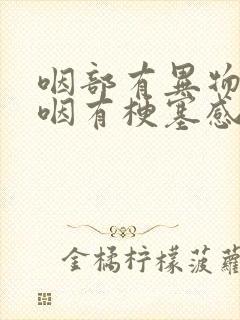 咽部有异物
咽有梗塞感
金橘柠檬菠萝